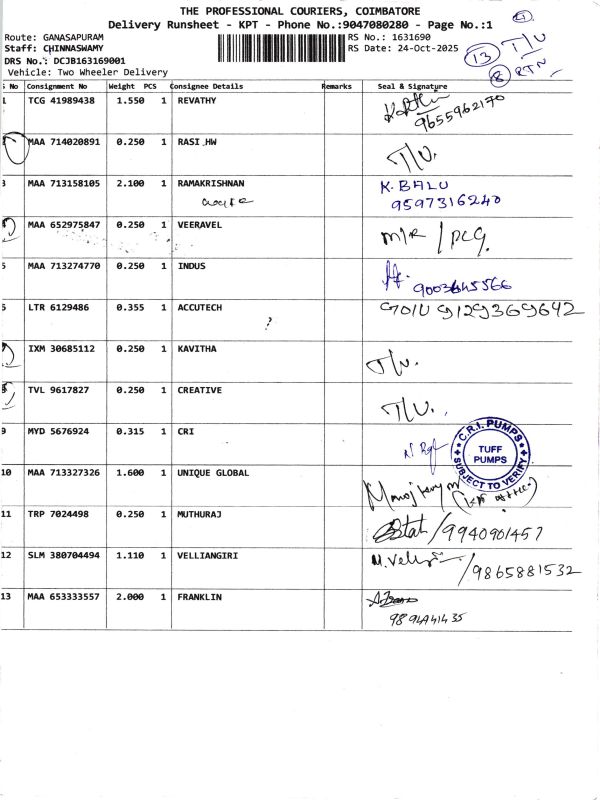 THE PROFESSIONAL COURIERS, COIMBATORE
Delivery Runsheet - KPT - Phone No.:9047080280 - Page No.:1
Route: GANASAPURAM
RS No.: 1631690
Staff: CHINNASWAMY
RS Date: 24-Oct-2025
DRS No.: DCJB163169001
Vehicle: Two Wheeler Delivery
13 T/U
8 RTN
S No Consignment No Weight PCS Consignee Details Remarks Seal & Signature
1 TCG 41989438 1.550 1 REVATHY
9655962170
MAA 714020891 0.250 1 RASI .HW T/U.
3 MAA 713158105 2.100 1 RAMAKRISHNAN K. BALU
9597316240
MAA 652975847 0.250 1 VEERAVEL M/R / PCG.
5 MAA 713274770 0.250 1 INDUS
9003645566
LTR 6129486 0.355 1 ACCUTECH 9129369642
?
IXM 30685112 0.250 1 KAVITHA T/U.
TVL 9617827 0.250 1 CREATIVE T/U.
9 MYD 5676924 0.315 1 CRI
C.R.I. PUMPS
TUFF
PUMPS
SUBJECT TO VERIFY
10 MAA 713327326 1.600 1 UNIQUE GLOBAL
11 TRP 7024498 0.250 1 MUTHURAJ /9940901457
12 SLM 380704494 1.110 1 VELLIANGIRI /9865881532
13 MAA 653333557 2.000 1 FRANKLIN